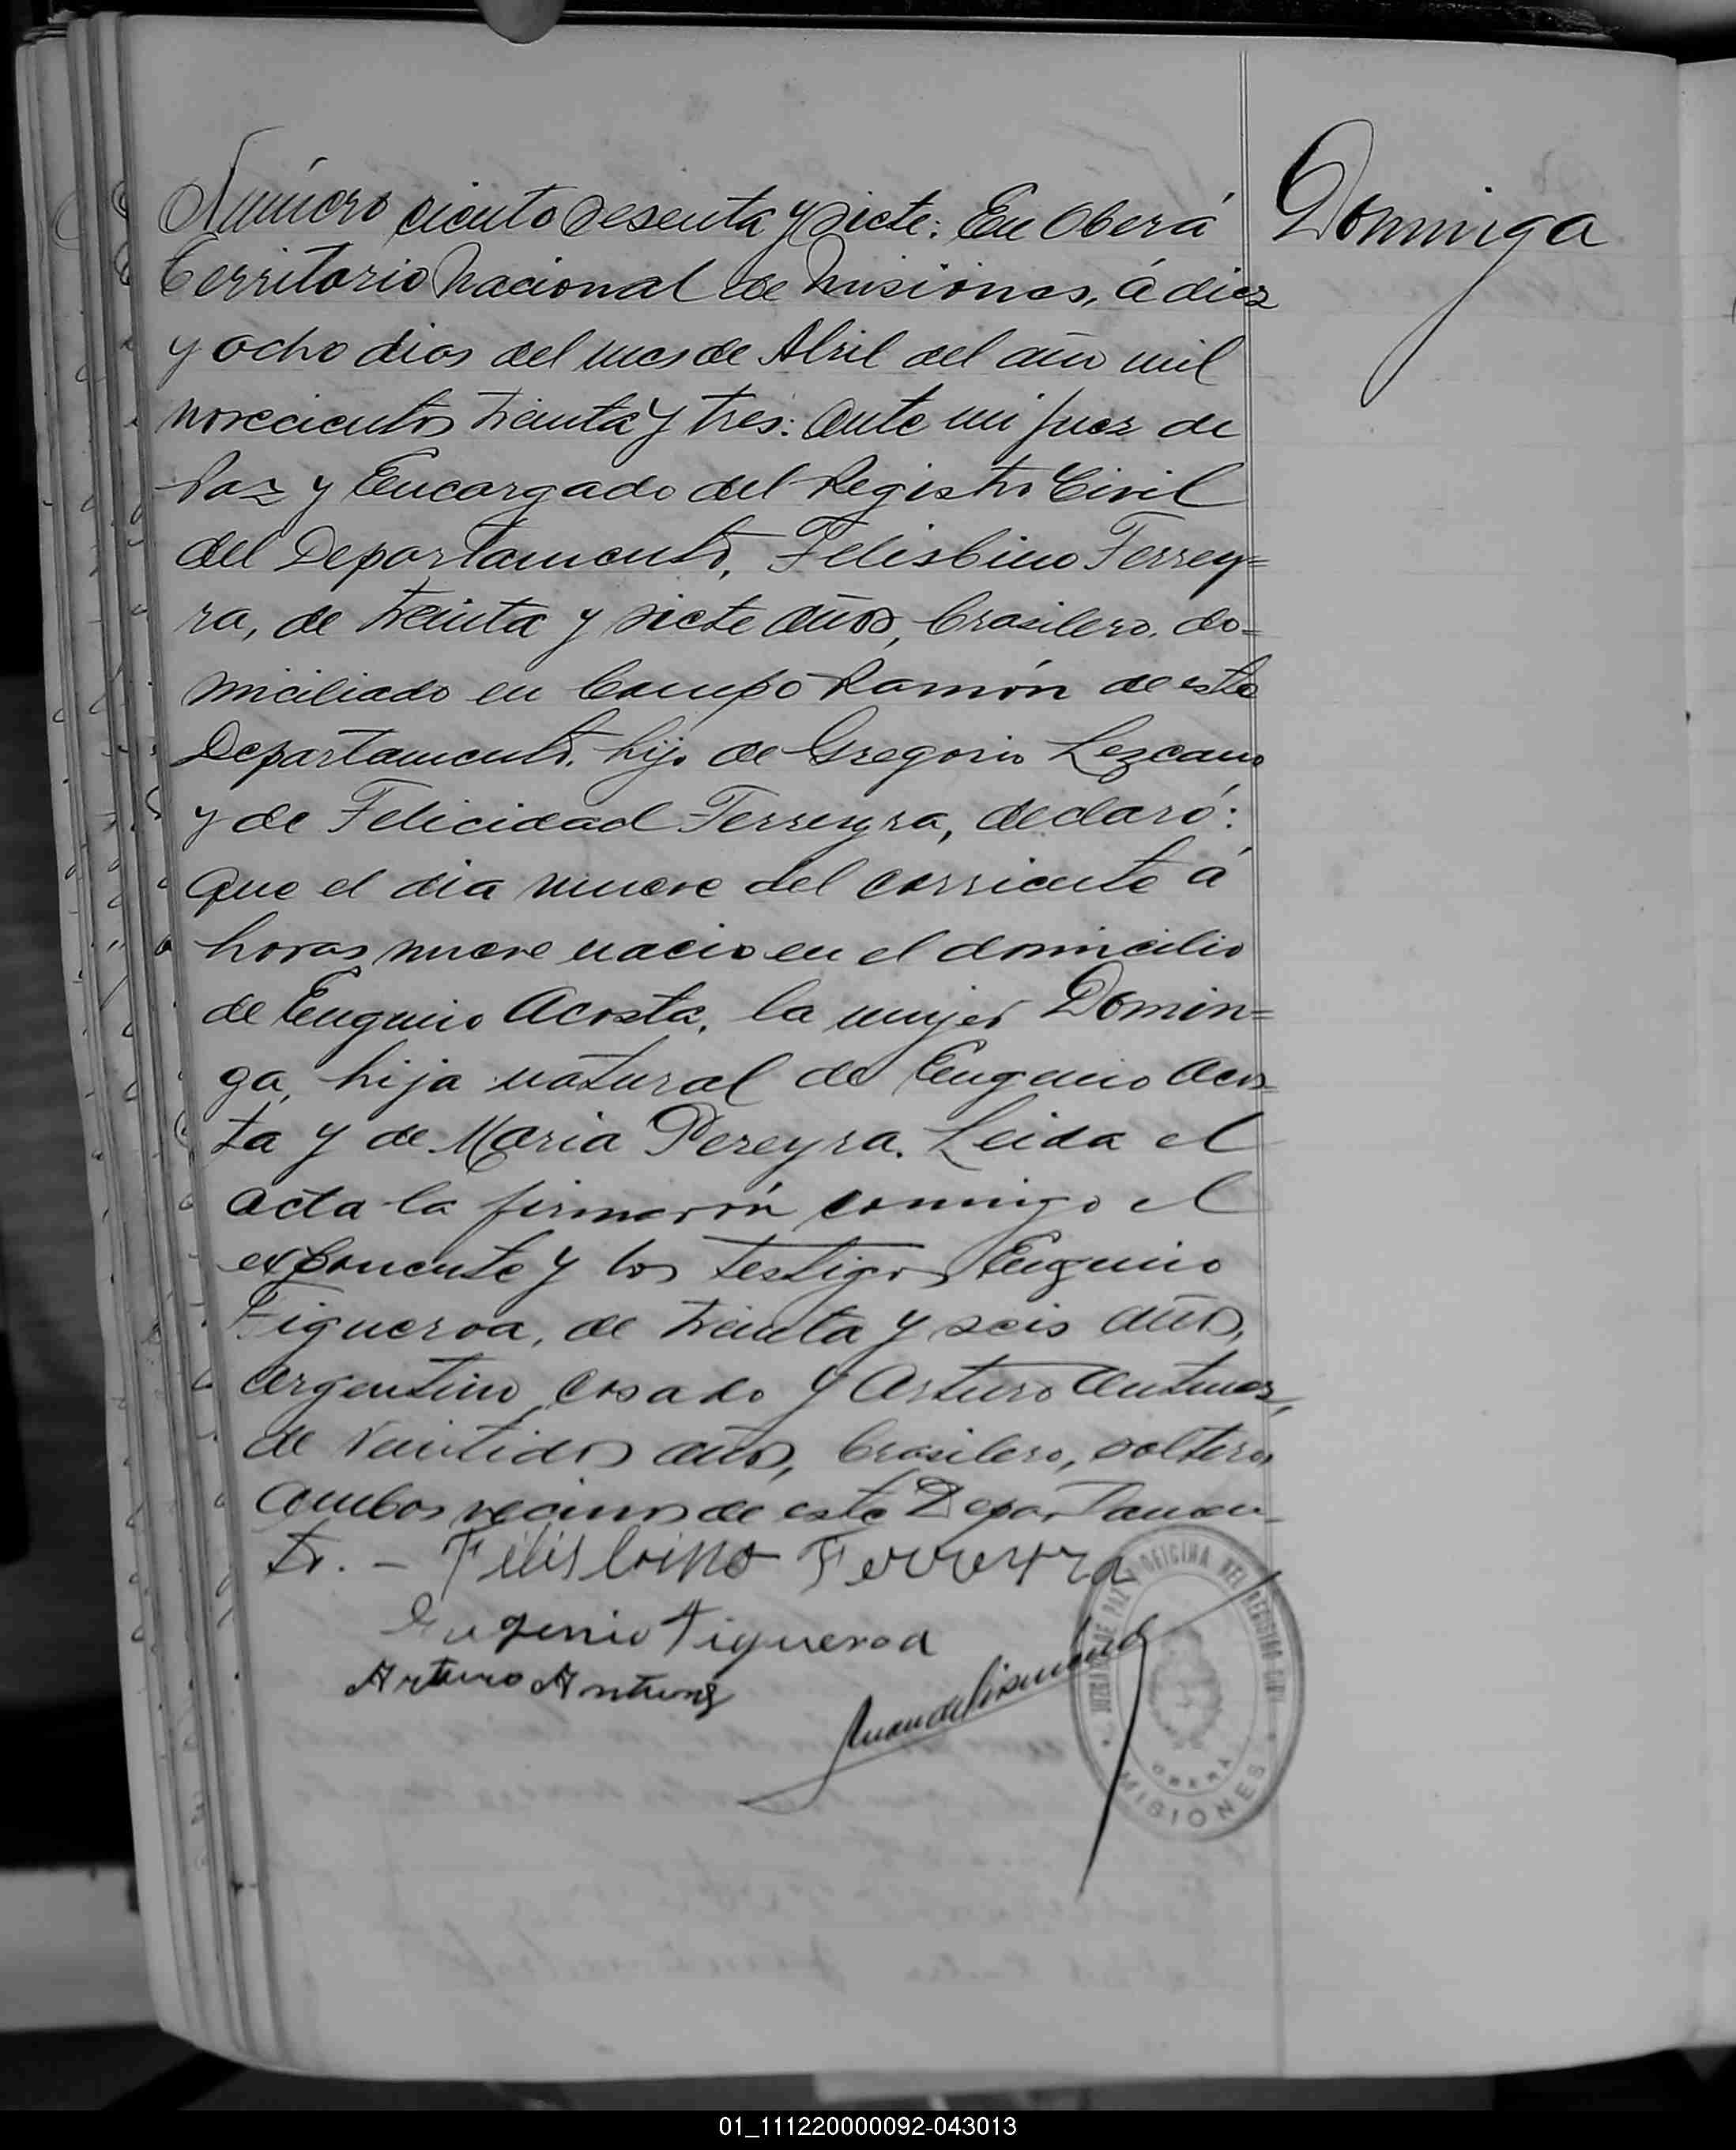 Número ciento sesenta y siete: En Oberá
Territorio Nacional de Misiones, á diez
y ocho dias del mes de Abril del año mil
novecientos treinta y tres: Ante mi Juez de
Paz y Encargado del Registro Civil
del Departamento, Felisbino Ferrey=
ra, de treinta y siete años, brasilero, do=
miciliado en Campo Ramón de este
Departamento, hijo de Gregorio Lezcano
y de Felicidad Ferreyra, declaró:
Que el dia nueve del corriente á
horas nueve nacio en el domicilio
de Eugenio Acosta, la mujer Domin=
ga, hija natural de Eugenio Acos=
ta y de Maria Pereyra. Leida el
acta la firmarón conmigo el
exponente y los testigos Eugenio
Figueroa, de treinta y seis años,
argentino, casado y Arturo Antunez,
de veintidos años, brasilero, soltero,
ambos vecinos de este Departamen-
to. — Felisbino Ferreyra
Eugenio Figueroa
Arturo Antunez
Dominga
JUZGADO DE PAZ Y OFICINA DEL REGISTRO CIVIL
OBERA
MISIONES
01_111220000092-043013